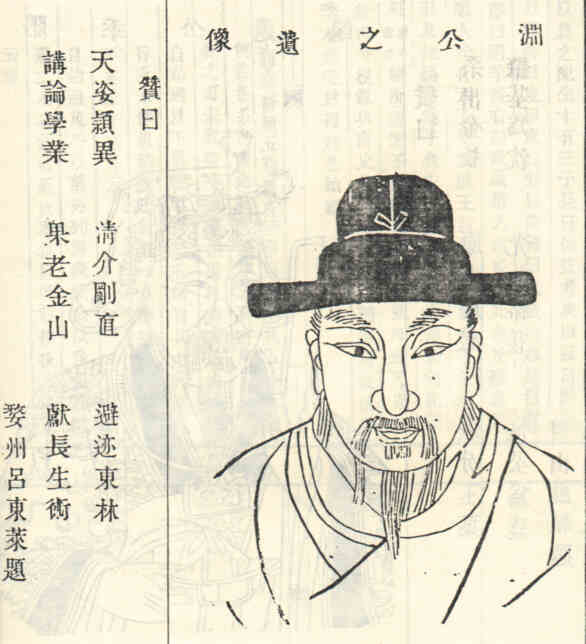 淵公之遺像
贊曰
天姿頴異 清介剛直 避迹東林
講論學業 果老金山 獻長生術
婺州呂東萊題